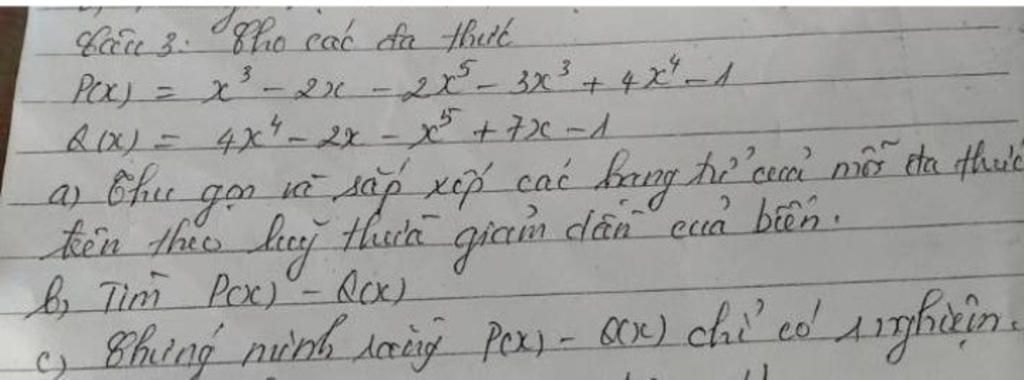 Câu 3: Cho các đa thức
P(x) = x³ - 2x - 2x⁵ - 3x³ + 4x⁴ - 1
Q(x) = 4x⁴ - 2x - x⁵ + 7x - 1
a) Thu gọn và sắp xếp các hạng tử của mỗi đa thức
trên theo luỹ thừa giảm dần của biến.
b) Tìm P(x) - Q(x)
c) Chứng minh rằng P(x) - Q(x) chỉ có 1 nghiệm.